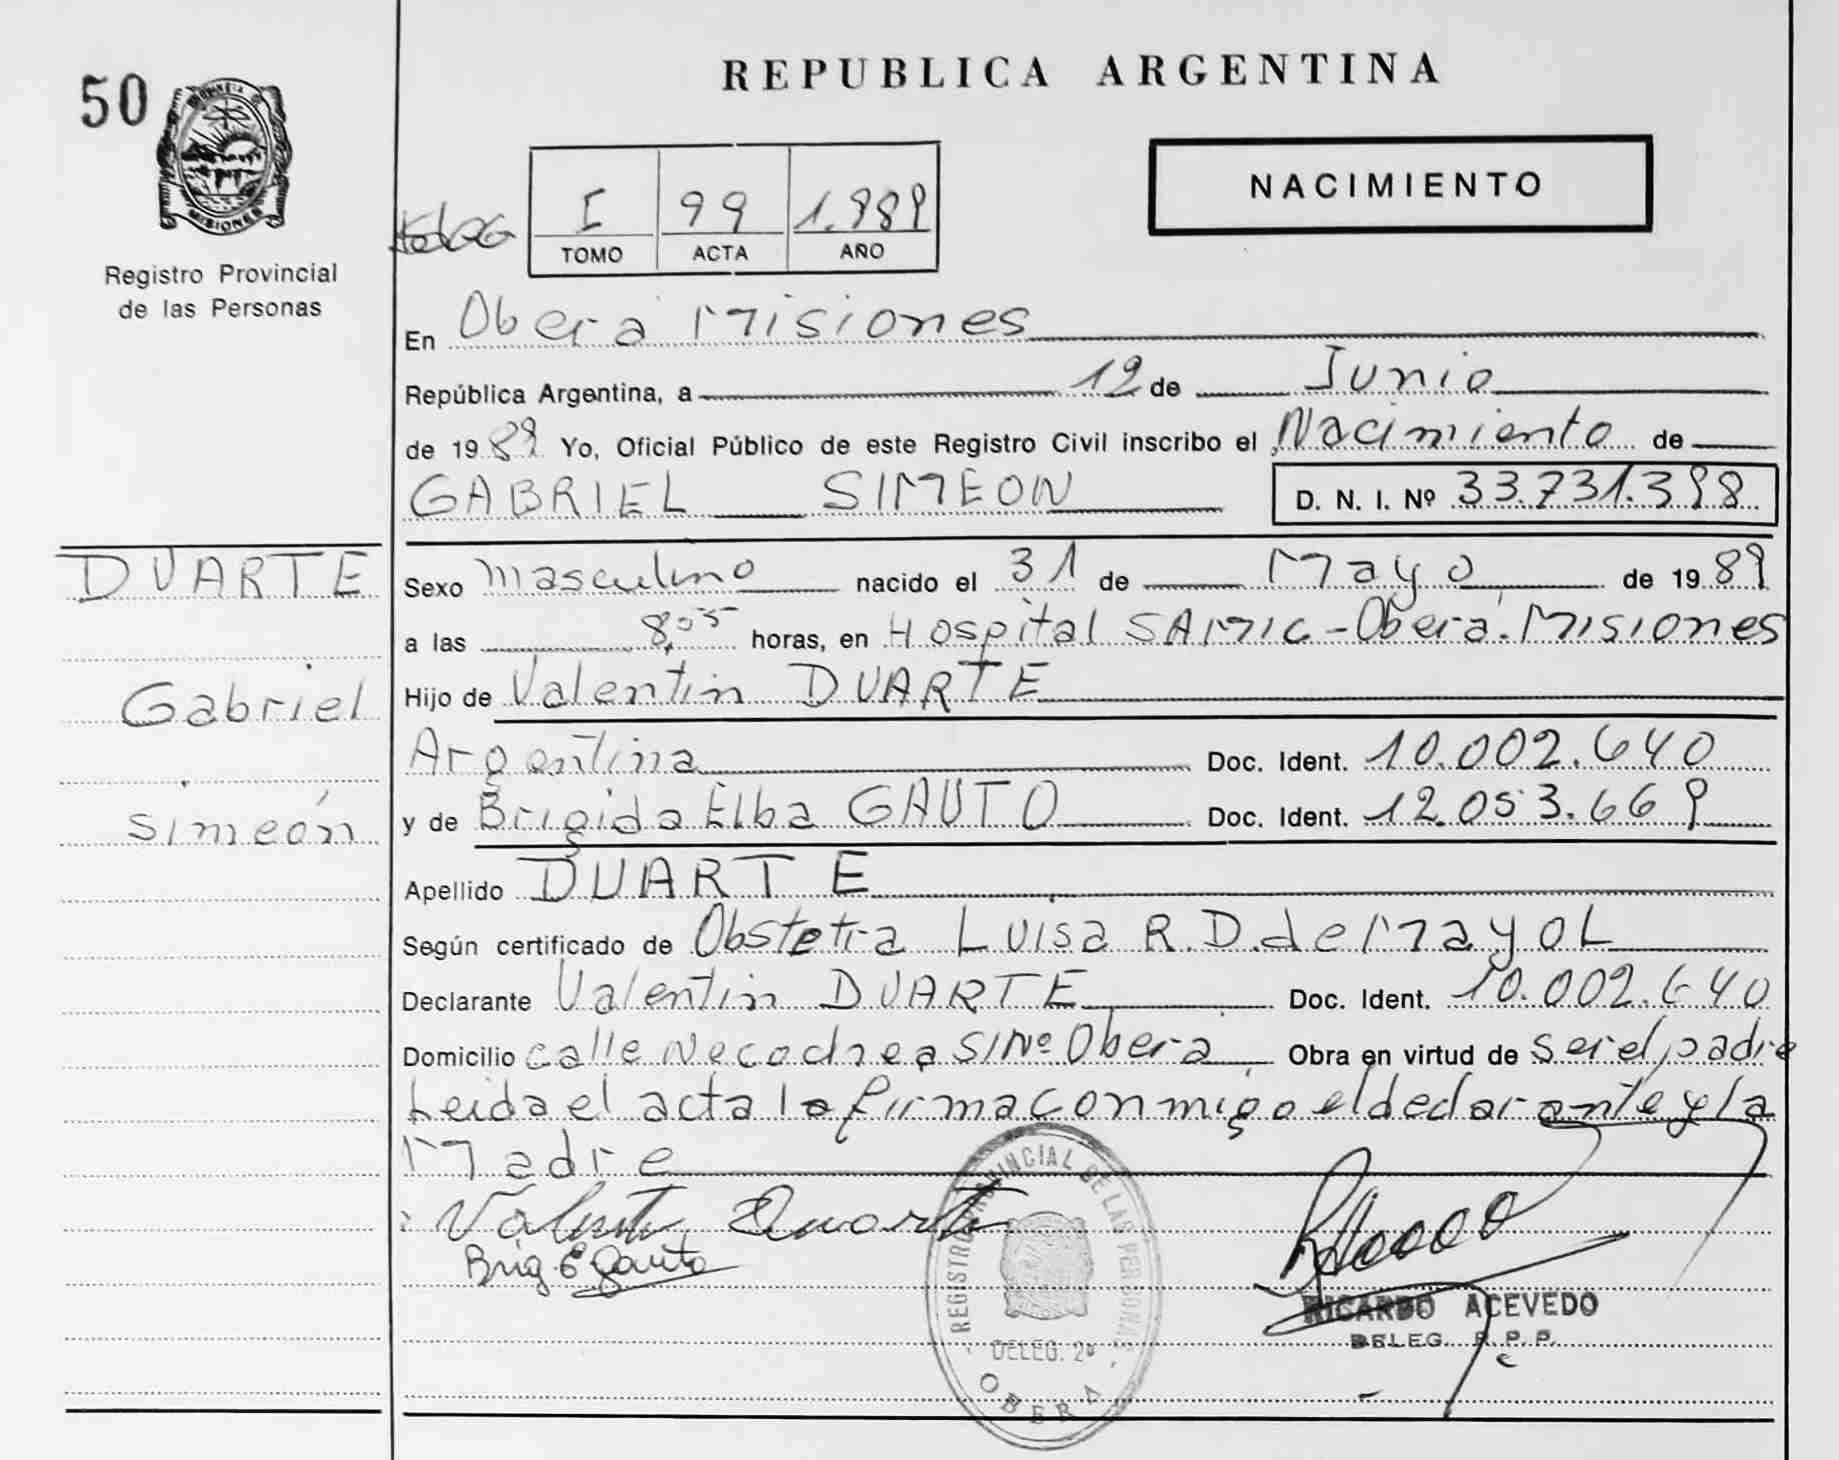 REPUBLICA ARGENTINA
50
NACIMIENTO
I 99 1.989
TOMO ACTA AÑO
Registro Provincial
de las Personas
MISIONES
En Oberá Misiones
República Argentina, a 12 de Junio
de 1989 Yo, Oficial Público de este Registro Civil inscribo el Nacimiento de
GABRIEL SIMEON D. N. I. Nº 33.731.398
DUARTE
Gabriel
Simeón
Sexo Masculino nacido el 31 de Mayo de 1989
a las 8,05 horas, en Hospital SAMIC - Oberá. Misiones
Hijo de Valentín DUARTE
Argentina Doc. Ident. 10.002.640
y de Brigida Elba GAUTO Doc. Ident. 12.053.669
Apellido DUARTE
Según certificado de Obstetra Luisa R. D. de Mayol
Declarante Valentín DUARTE Doc. Ident. 10.002.640
Domicilio calle Necochea S/Nº Oberá Obra en virtud de ser el padre
Leida el acta la firma conmigo el declarante y la
Madre
Valentin Duarte
Brig. E Gauto
REGISTRO PROVINCIAL DE LAS PERSONAS
DELEG. 2ª
OBERA
RICARDO ACEVEDO
DELEG. R. P. P.